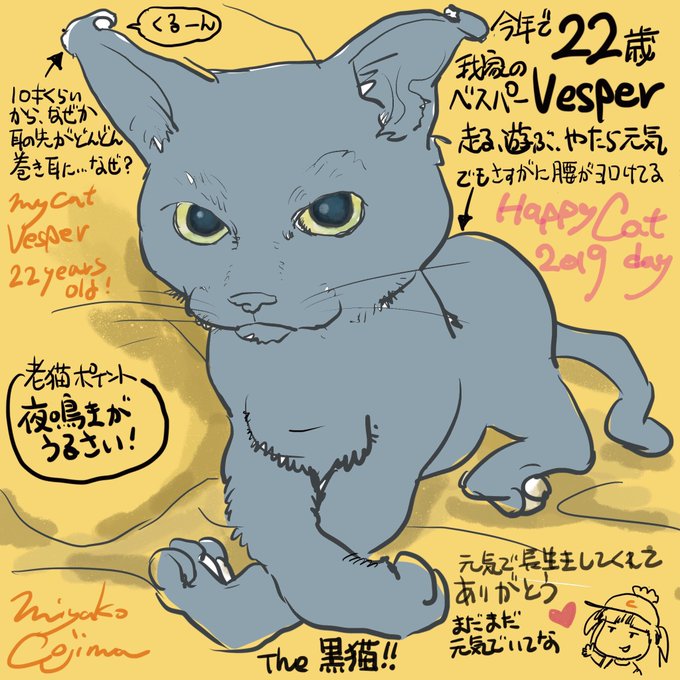 くるーん
今年で22歳
我家の
ベスパー Vesper
走る、遊ぶ、やたら元気
でもさすがに腰がヨロけてる
10才くらい
から、なぜか
耳の先がどんどん
巻き耳に…なぜ?
my cat
Vesper
22 years
old!
Happy Cat
2019 day
老猫ポイント
夜鳴きが
うるさい!
元気で長生きしてくれて
ありがとう
まだまだ
元気でいてな
Miyako
Cojima
The 黒猫!!